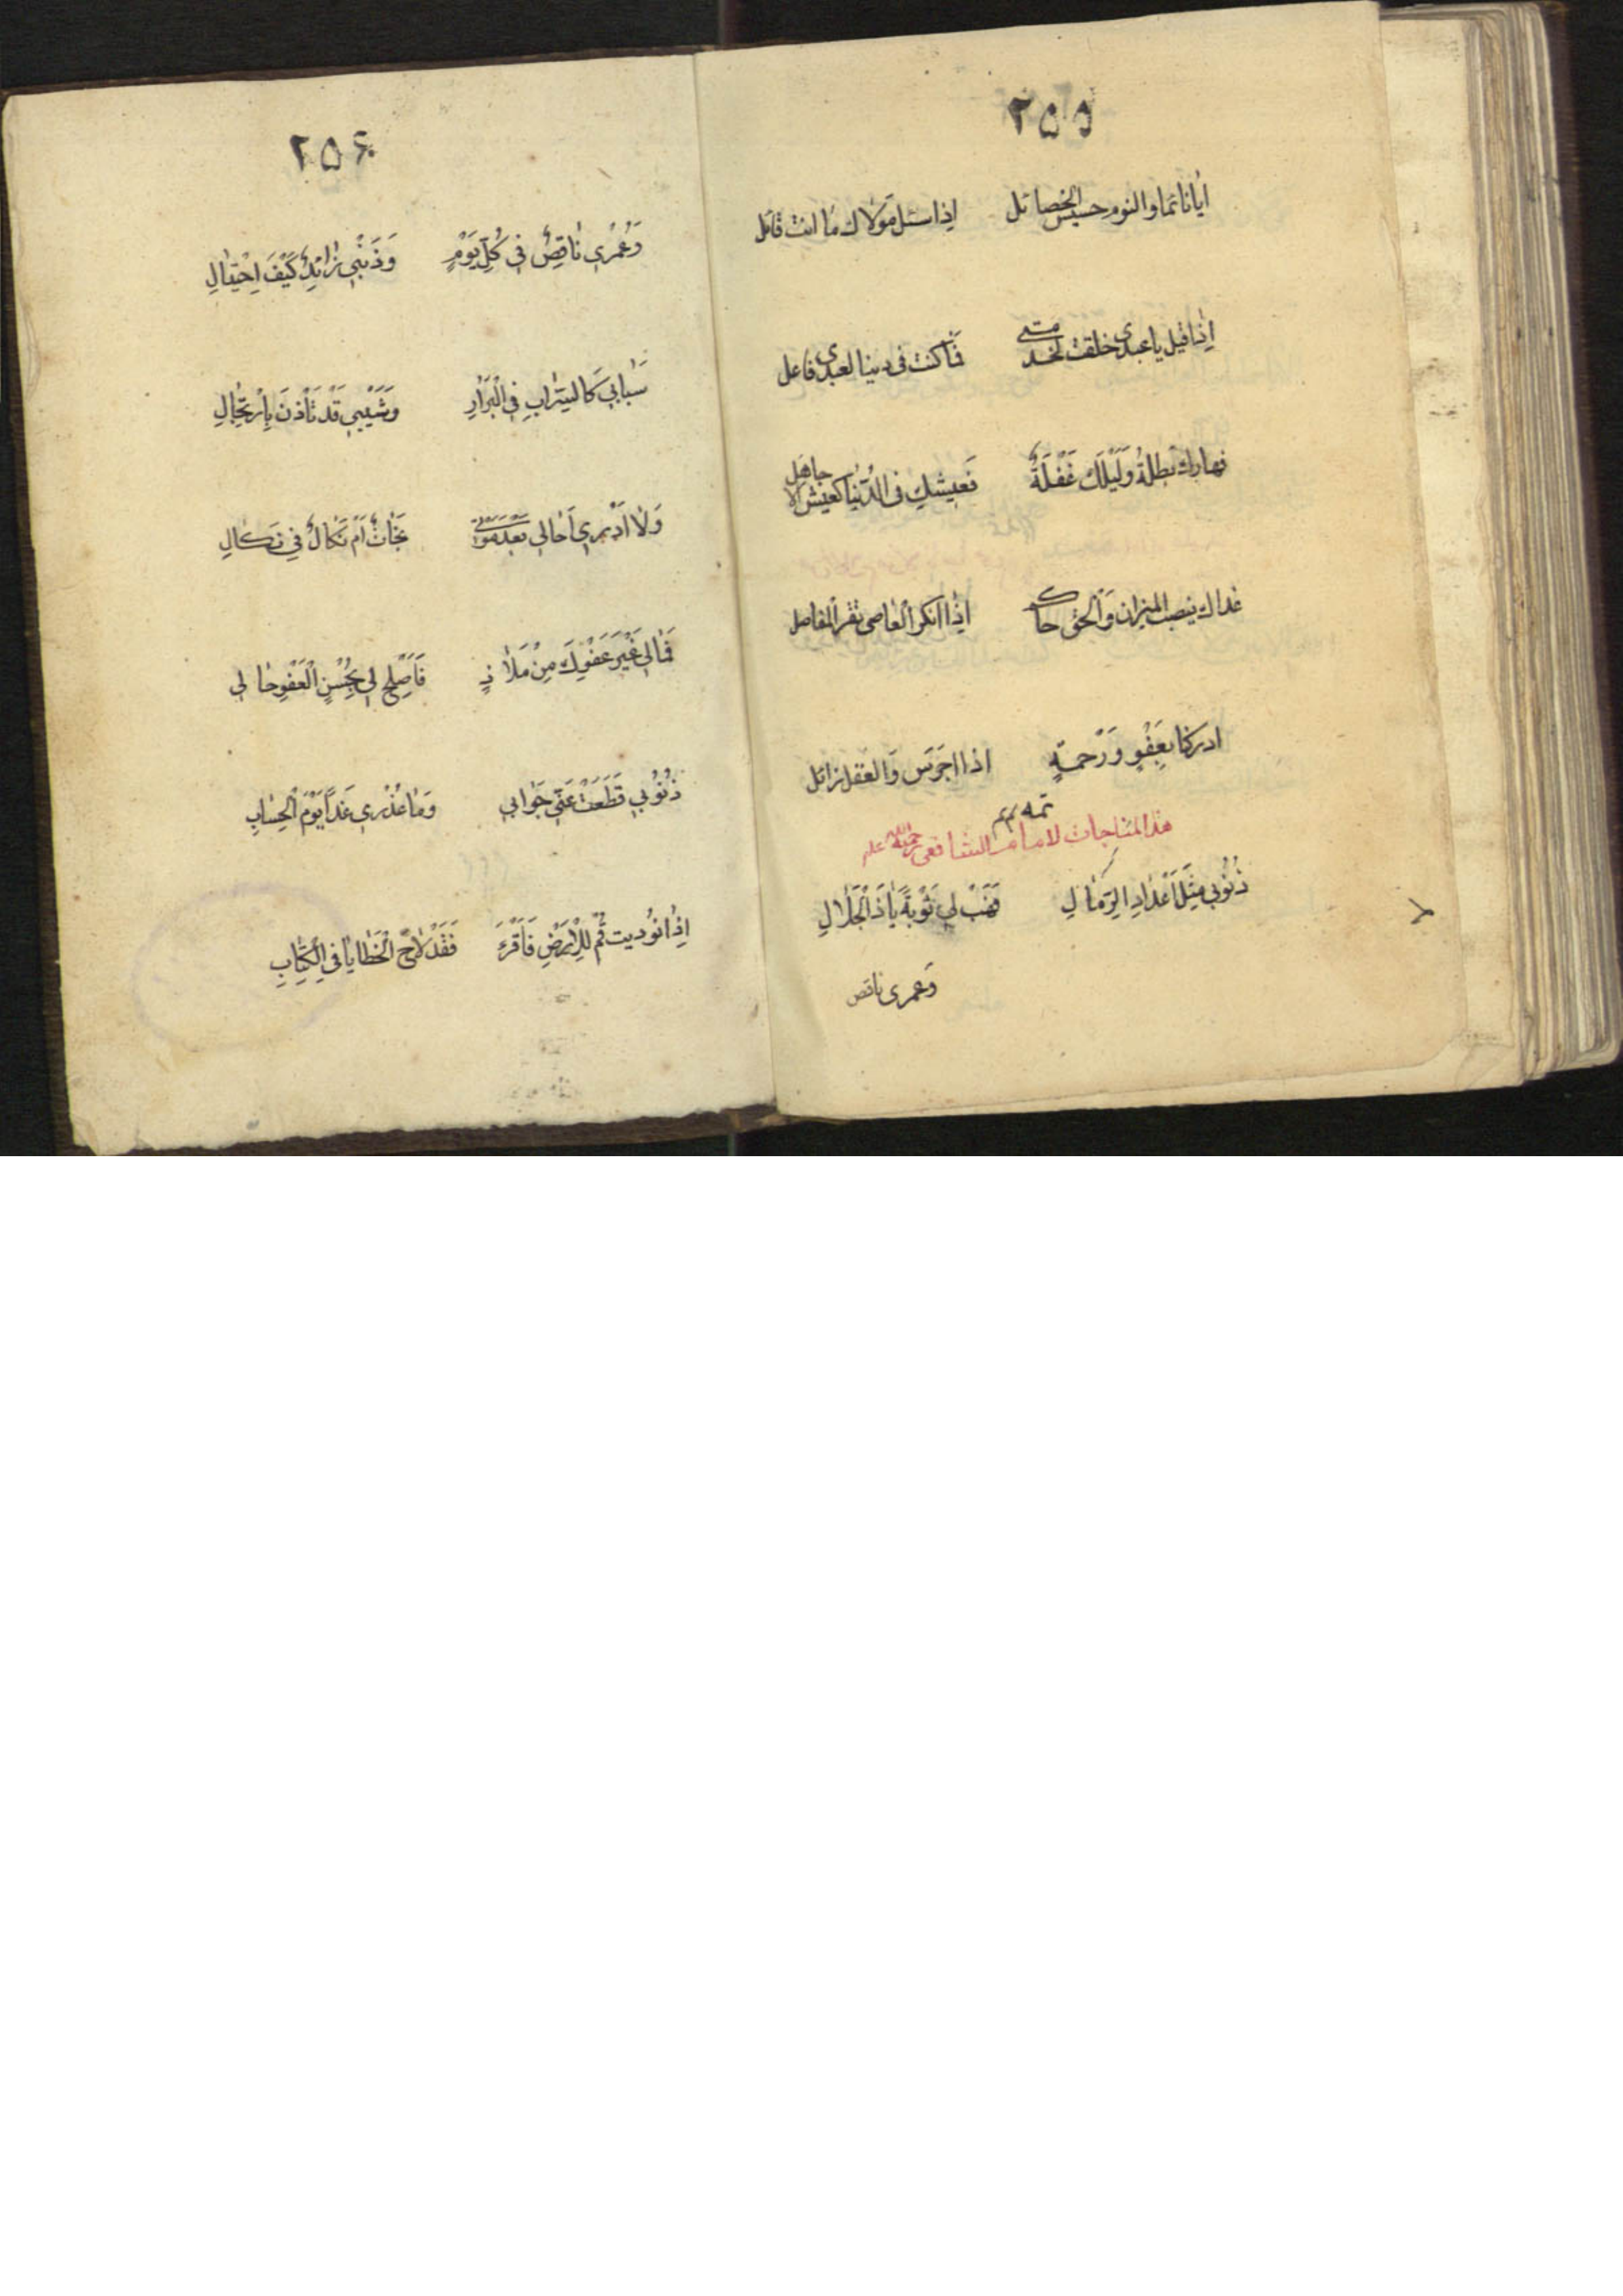 ٢٥٥
أيا نائما والنوم حسيس الخصائل اذا سئل مولاك ما انت قائل
اذا قيل يا عبدى خلقت لخدمتى فما كنت فى دنيا لعبدى فاعل
نهارك بطلة وَلَيْلَكَ غَفْلَةٌ فَعَيشك فى الدُّنْيَا كعيش الا جاهل
غداك ينصب الميزان وَالحق حاكم اِذا انكر العاصى تقر المفاصل
ادركنا بِعَفْوٍ وَرَحمةٍ اذا وَالعقل زائل
تمه م م
هذا المناجات لامام الشافعى رحمة الله عليه
ذُنُوبي مِثْلُ اَعْدَادِ الرِّمَالِ فَهَبْ لي تَوْبَةً يَا ذَا الْجَلَالِ
وَعمرى ناقص
٢٥۶
وَعُمْرِي نَاقِصٌ فِي كُلِّ يَوْمٍ وَذَنْبِي زَائِدٌ كَيْفَ احْتِيَالِ
شَبَابِي كَالسَّرَابِ فِي الْبَرَارِ وَشَيْبِي قَدْ تَأذنَ بِارْتِحَالِ
وَلَا اَدْرِي اَحَالِي بَعْدَ مَوْتِي نَجَاتٌ اَمْ نَكَالٌ فِي نَكَالِ
فَمَالِي غَيْرَ عَفْوِكَ مِنْ مَلَاذٍ فَاَصْلِحْ لِي بِحُسْنِ الْعَفْوِ حَالِي
ذُنُوبِي قَطَعَتْ عَنِّي جَوَابِي وَمَا عُذْرِي غَدًا يَوْمَ الْحِسَابِ
اِذَا نُودِيت قُمْ لِلْاَرْضِ فَاقْرَءْ فَقَدْ لَاحَ الْخَطَايَا فِي الْكِتَابِ